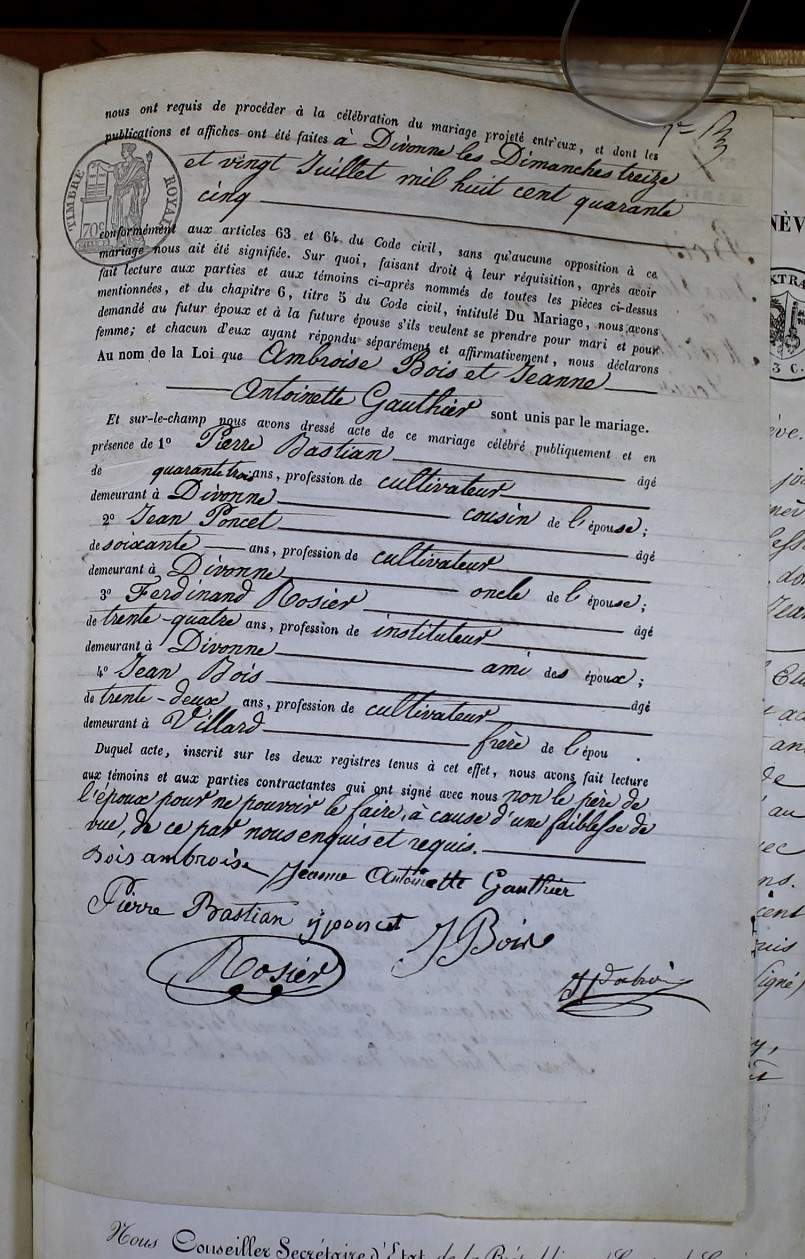 nous ont requis de procéder à la célébration du mariage projeté entr'eux, et dont les
publications et affiches ont été faites à Divonne les Dimanches treize
et vingt Juillet mil huit cent quarante
cinq
TIMBRE ROYAL
70c
conformément aux articles 63 et 64 du Code civil, sans qu'aucune opposition à ce
mariage nous ait été signifiée. Sur quoi, faisant droit à leur réquisition, après avoir
fait lecture aux parties et aux témoins ci-après nommés de toutes les pièces ci-dessus
mentionnées, et du chapitre 6, titre 5 du Code civil, intitulé Du Mariage, nous avons
demandé au futur époux et à la future épouse s'ils veulent se prendre pour mari et pour
femme; et chacun d'eux ayant répondu séparément et affirmativement, nous déclarons
Au nom de la Loi que Ambroise Bois et Jeanne
Antoinette Gauthier sont unis par le mariage.
Et sur-le-champ nous avons dressé acte de ce mariage célébré publiquement et en
présence de 1º Pierre Bastian âgé
de quarante trois ans, profession de cultivateur
demeurant à Divonne cousin de l'épouse;
2º Jean Poncet âgé
de soixante ans, profession de cultivateur
demeurant à Divonne oncle de l'épouse;
3º Ferdinand Rosier âgé
de trente-quatre ans, profession de instituteur
demeurant à Divonne ami des époux;
4º Jean Bois âgé
de trente-deux ans, profession de cultivateur
demeurant à Villard frère de l'épou .
Duquel acte, inscrit sur les deux registres tenus à cet effet, nous avons fait lecture
aux témoins et aux parties contractantes qui ont signé avec nous non le père de
l'époux pour ne pouvoir le faire, à cause d'une faiblesse de
vue, de ce par nous enquis et requis.
Bois ambroise Jeanne Antoinette Gauthier
Pierre Bastian jponcet J Bois
Rosier
NÈV
XTRA
3 C.
Nous Conseiller Secrétaire d'Etat de la